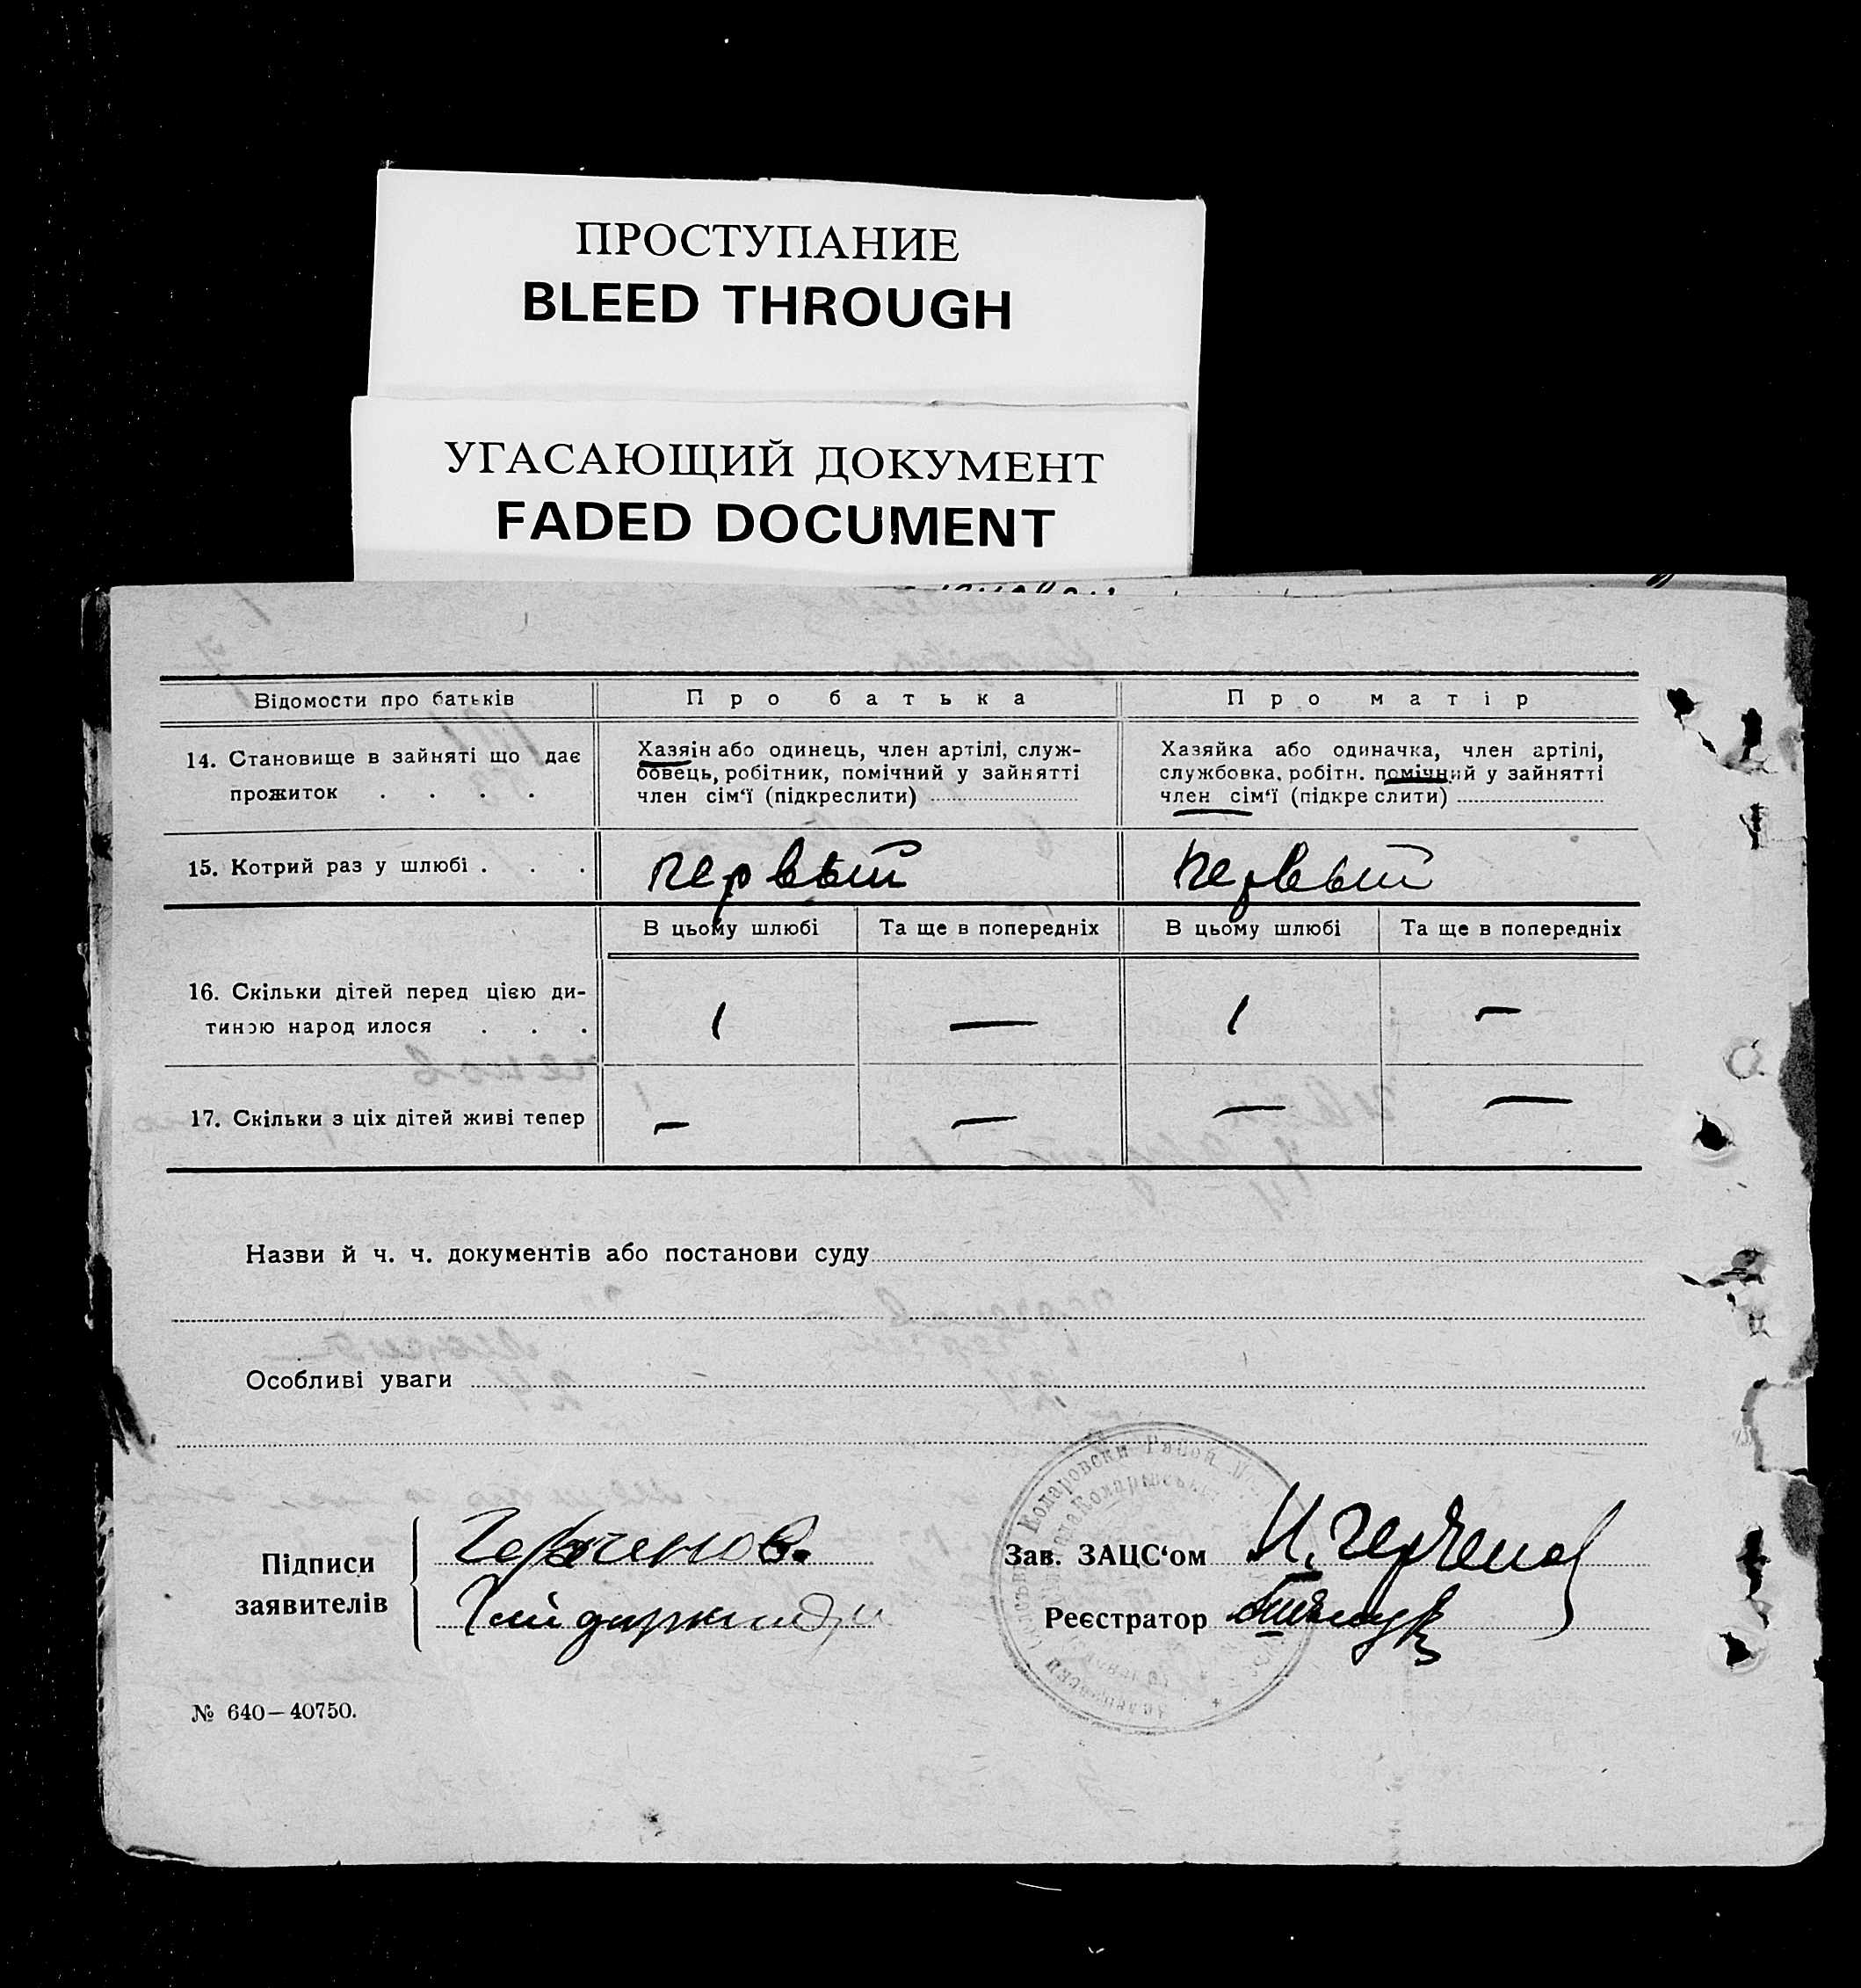 ПРОСТУПАНИЕ
BLEED THROUGH
УГАСАЮЩИЙ ДОКУМЕНТ
FADED DOCUMENT
Відомости про батьків
Про батька
Про матір
14. Становище в зайняті що дає
прожиток . . . .
Хазяін або одинець, член артілі, служ-
бовець, робітник, помічний у зайнятті
член сім‘ї (підкреслити)
Хазяйка або одиначка, член артілі,
службовка, робітн. помічний у зайнятті
член сім‘ї (підкреслити)
15. Котрий раз у шлюбі . . .
первый
первый
В цьому шлюбі
Та ще в попередніх
В цьому шлюбі
Та ще в попередніх
16. Скільки дітей перед цією ди-
тиною народилося . . .
1
—
1
—
17. Скільки з ціх дітей живі тепер
—
—
—
—
Назви й ч. ч. документів або постанови суду
Особливі уваги
Підписи
заявителів
Зав. ЗАЦС‘ом
И. Герченов
Реєстратор
№ 640—40750.